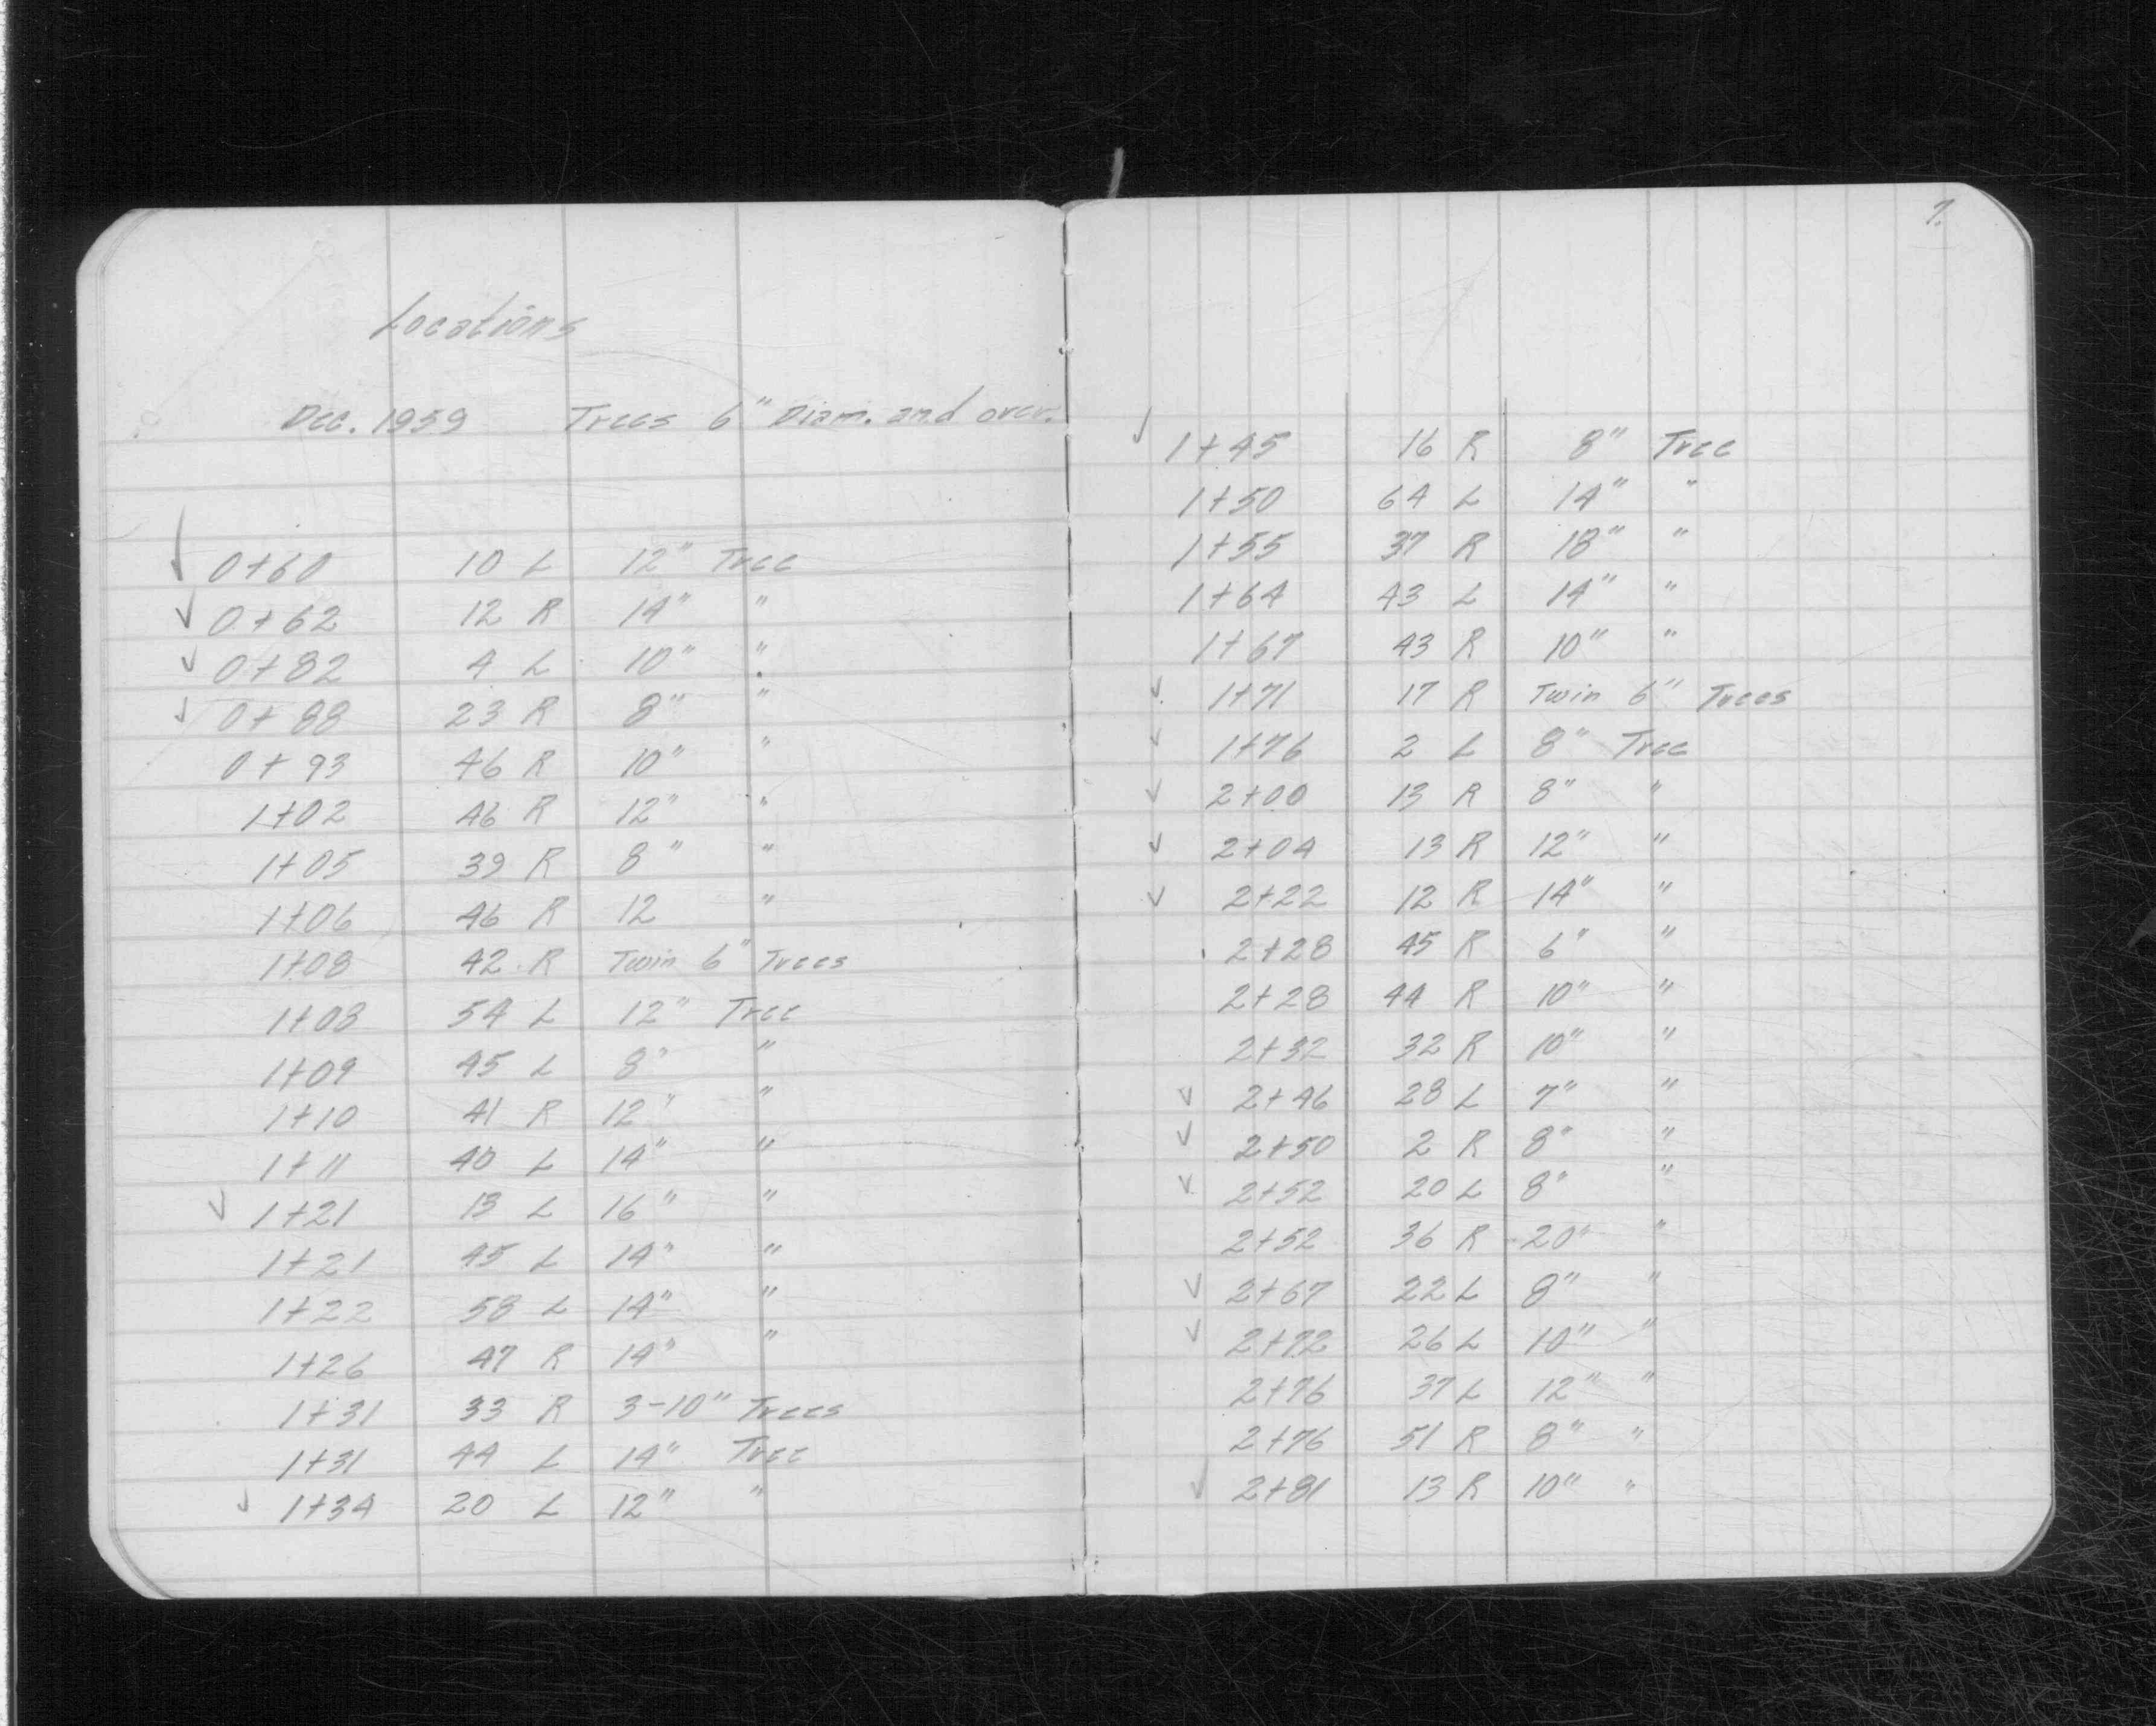 Locations
Dec. 1959 Trees 6" Diam. and over.
✓ 0+60 10 L 12" Tree
✓ 0+62 12 R 14" "
✓ 0+82 4 L 10" "
✓ 0+88 23 R 8" "
0+93 46 R 10" "
1+02 46 R 12" "
1+05 39 R 8" "
1+06 46 R 12 "
1+08 42 R Twin 6" Trees
1+08 54 L 12" Tree
1+09 45 L 8" "
1+10 41 R 12" "
1+11 40 L 14" "
✓ 1+21 13 L 16" "
1+21 45 L 14" "
1+22 58 L 14" "
1+26 47 R 14" "
1+31 33 R 3-10" Trees
1+31 44 L 14" Tree
✓ 1+34 20 L 12" "
7.
✓ 1+45 16 R 8" Tree
1+50 64 L 14" "
1+55 37 R 18" "
1+64 43 L 14" "
1+67 43 R 10" "
✓ 1+71 17 R Twin 6" Trees
✓ 1+76 2 L 8" Tree
✓ 2+00 13 R 8" "
✓ 2+04 13 R 12" "
✓ 2+22 12 R 14" "
2+28 45 R 6" "
2+28 44 R 10" "
2+32 32 R 10" "
✓ 2+46 28 L 7" "
✓ 2+50 2 R 8" "
✓ 2+52 20 L 8" "
2+52 36 R 20" "
✓ 2+67 22 L 8" "
✓ 2+72 26 L 10" "
2+76 37 L 12" "
2+76 51 R 8" "
✓ 2+81 13 R 10" "